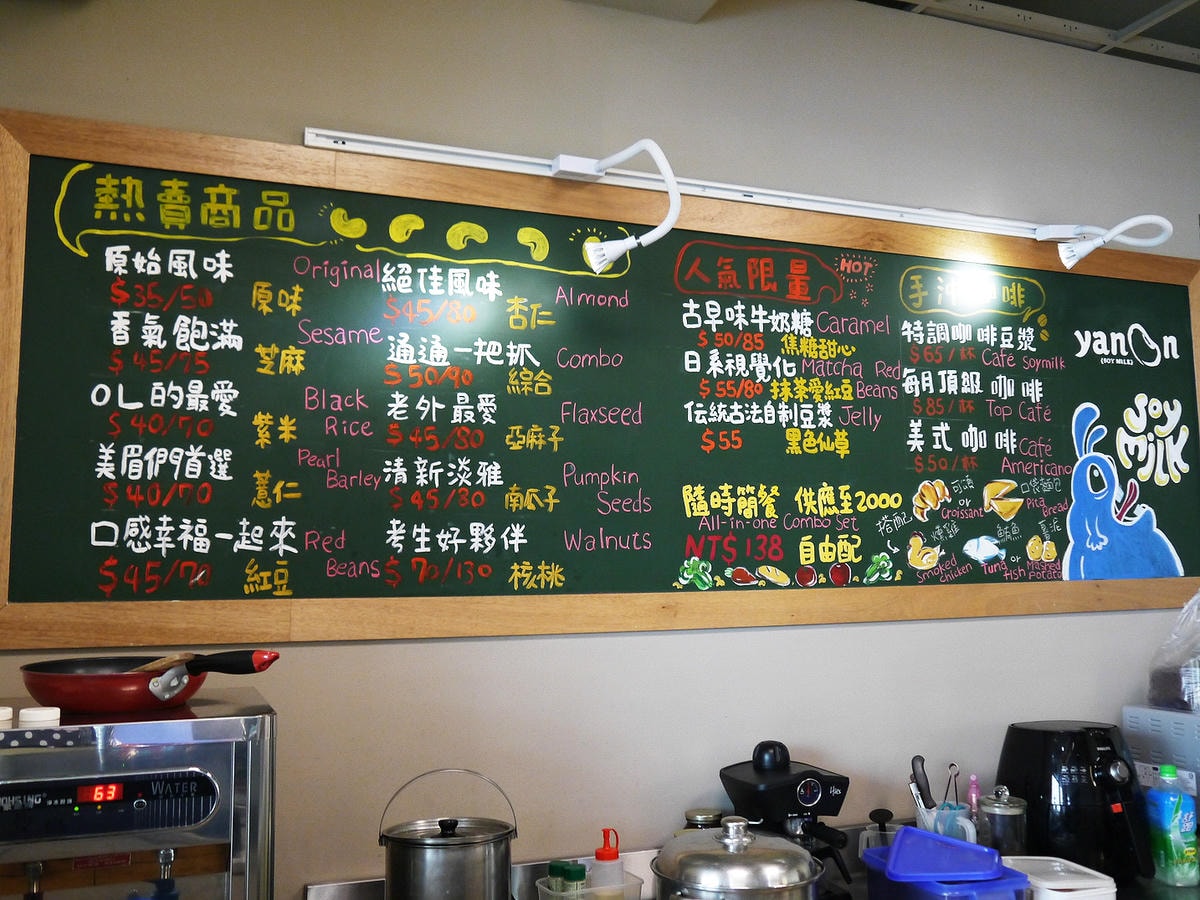 熱賣商品
原始風味 Original
$35/50 原味
香氣飽滿 Sesame
$45/75 芝麻
OL的最愛 Black Rice
$40/70 紫米
美眉們首選 Pearl Barley
$40/70 薏仁
口感幸福一起來 Red Beans
$45/70 紅豆
絕佳風味 Almond
$45/80 杏仁
通通一把抓 Combo
$50/90 綜合
老外最愛 Flaxseed
$45/80 亞麻子
清新淡雅 Pumpkin Seeds
$45/80 南瓜子
考生好夥伴 Walnuts
$70/130 核桃
人氣限量 HOT
古早味牛奶糖 Caramel
$50/85 焦糖甜心
日系視覺化 Matcha Red Beans
$55/80 抹茶愛紅豆
伝統古法自制豆漿 Jelly
$55 黑色仙草
隨時簡餐 供應至2000
All-in-one Combo Set
NT$138 自由配
手 咖啡
特調咖啡豆漿
$65/杯 Café Soymilk
每月頂級咖啡
$85/杯 Top Café
美式咖啡 Café Americano
$50/杯
搭配
可頌 or 口袋麵包
Croissant Pita Bread
燻雞 鮪魚 or 薯泥
Smoked chicken Tuna fish Mashed Potato
yanOn
(SOY MILK)
Soy Milk
63
WATER
Hjes